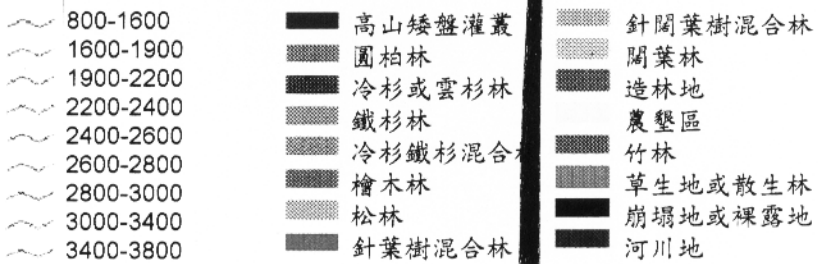 800-1600
1600-1900
1900-2200
2200-2400
2400-2600
2600-2800
2800-3000
3000-3400
3400-3800
高山矮盤灌叢
圓柏林
冷杉或雲杉林
鐵杉林
冷杉鐵杉混合
檜木林
松林
針葉樹混合林
針闊葉樹混合林
闊葉林
造林地
農墾區
竹林
草生地或散生林
崩塌地或裸露地
河川地